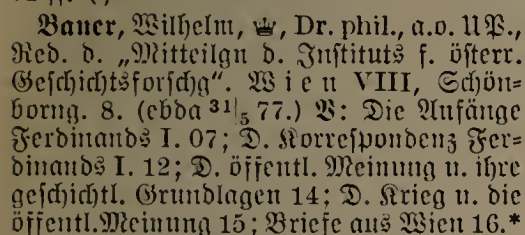 Bauer, Wilhelm, ♛, Dr. phil., a.o. UP.,
Red. d. „Mitteilgn d. Instituts f. österr.
Geschichtsforschg“. Wien VIII, Schön-
borng. 8. (ebda 31/5 77.) V: Die Anfänge
Ferdinands I. 07; D. Korrespondenz Fer-
dinands I. 12; D. öffentl. Meinung u. ihre
geschichtl. Grundlagen 14; D. Krieg u. die
öffentl. Meinung 15; Briefe aus Wien 16.*